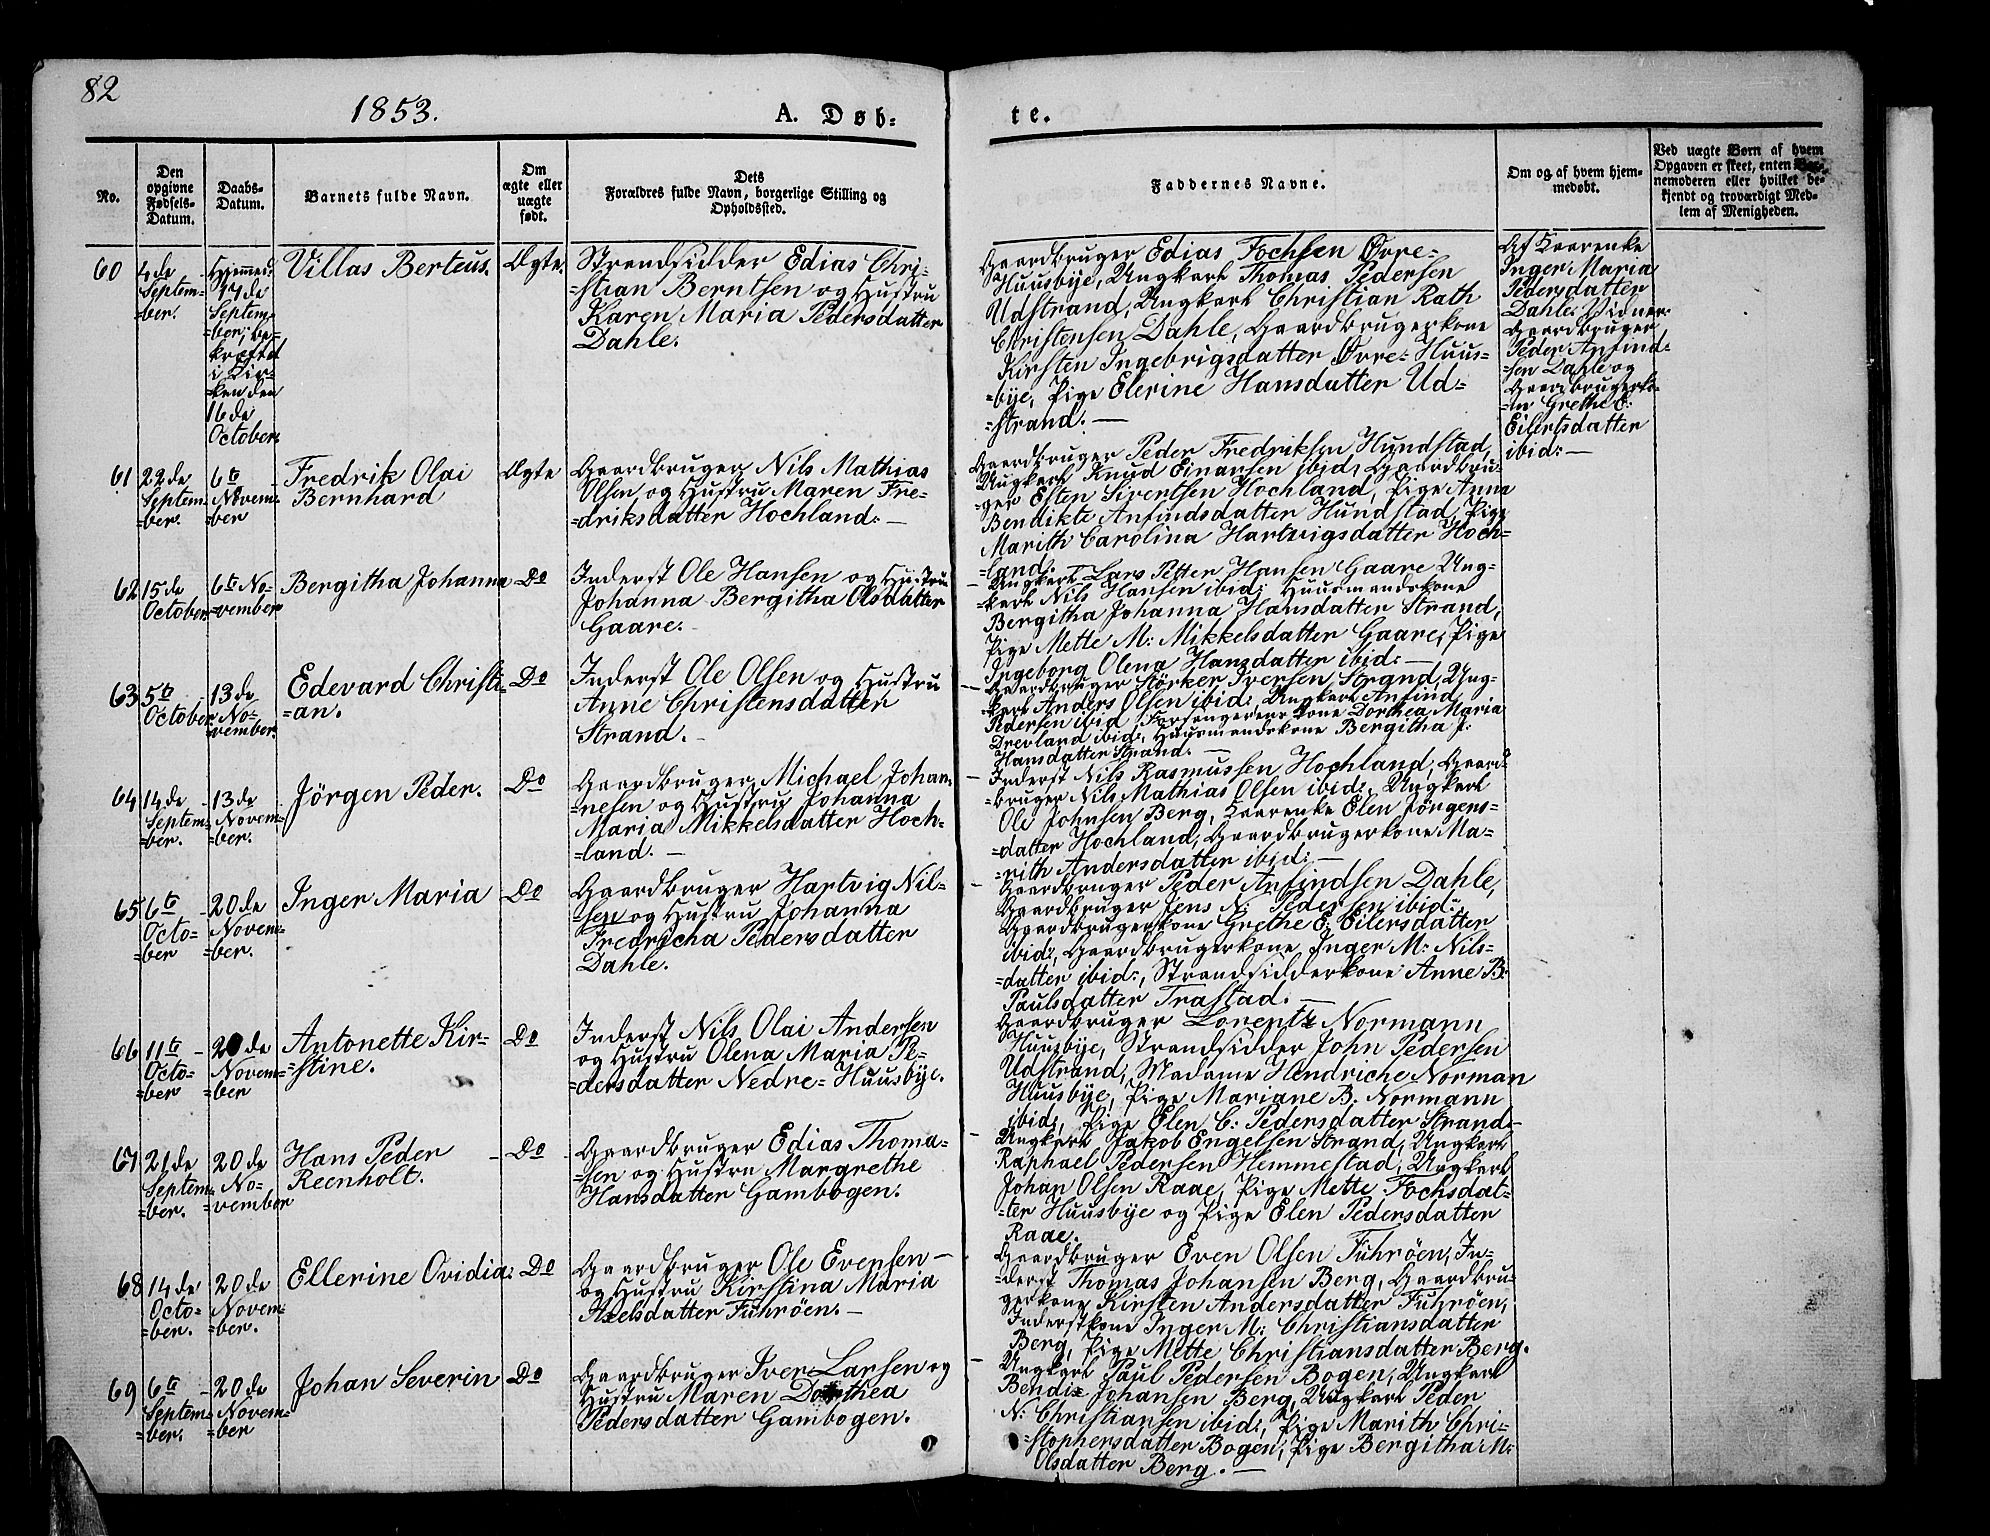 82
1853.
A. Døb-
te.
No.
Den
opgivne
Fødsels-
Datum.
Daabs-
Datum.
Barnets fulde Navn.
Om
ægte eller
uægte
født.
Dets
Forældres fulde Navn, borgerlige Stilling og
Opholdssted.
Faddernes Navne.
Om og af hvem hjem-
medøbt.
Ved uægte Børn af hvem
Opgaven er skeet, enten Bar-
nemoderen eller hvilket be-
kjendt og troværdigt Med-
lem af Menigheden.
60
4de
Septem-
ber.
Hjemmed:
17de
Septem-
=ber, be-
kræftet
i Kir-
=ken den
16de
October.
Villas Berteus.
Ægte.
Strandsidder Edias Chri-
=stian Berntsen og Hustru
Karen Maria Pedersdatter
Dahle.
Gaardbruger Edias Fochsen Øvre-
Huusbye, Ungkarl Thomas Pedersen
Udstrand, Ungkarl Christian Rath
Christensen Dahle, Gaardbrugerkone
Kirsten Ingebrigsdatter Øvre-Huus-
=bye, Pige Elerine Hansdatter Ud=
=strand. —
Af Kaarenke
Inger Maria
Pedersdatter
Dahle. Vidner:
Gaardbruger
Peder Anfind-
=sen Dahle og
Gaardbrugerko-
=ne Grethe E:
Eilertsdatter
ibid: —
61
22de
Septem-
=ber.
6te
Novem-
=ber
Fredrik Olai
Bernhard
Ægte
Gaardbruger Nils Mathias
Olsen og Hustru Maren Fre-
=driksdatter Hochland: —
Gaardbruger Peder Fredriksen Hundstad,
Ungkarl Knud Einarsen ibid, Gaardbru-
=ger Esten Sivertsen Hochland, Pige Anne
Bendikte Anfindsdatter Hundstad, Pige
Marith Carolina Hartvigsdatter Hoch-
=land.
62
15de
October
6te No-
=vember
Bergitha Johanna
Do
Inderst Ole Hansen og Hustru
Johanna Bergitha Olsdatter
Gaare.
— Ungkarl Lars Petter Hansen Gaare Ung-
=karl Nils Hansen ibid; Huusmandskone
Bergitha Johanna Hansdatter Strand,
Pige Mette M: Mikkelsdatter Gaare, Pige
Ingeborg Olena Hansdatter ibid: —
63
5te
October
13de
No-
vember.
Edevard Christi-
=an.
Do
Inderst Ole Olsen og Hustru
Anne Christensdatter
Strand. —
— Gaardbruger Störker Iversen Strand, Ung-
=karl Anders Olsen ibid:, Ungkarl Anfind
Pedersen ibid, Forsangerens kone Dorthea Maria
Drevland ibid:, Huusmandskone Bergitha J:
Hansdatter Strand. —
64
14de
Septem-
=ber.
13de
Novem-
=ber.
Jörgen Peder.
Do
Gaardbruger Michael Johan-
=nesen og Hustru Johanna
Maria Mikkelsdatter Hoch-
=land. —
— Inderst Nils Rasmussen Hochland, Gaard-
=bruger Nils Mathias Olsen ibid:, Ungkarl
Ole Johnsen Berg, Kaarenke Elen Jörgens-
=datter Hochland, Gaardbrugerkone Ma-
=rith Andersdatter ibid: —
65
6te
Octo-
=ber
20de
Novem-
=ber.
Inger Maria
Do
Gaardbruger Hartvig Nil-
sen og Hustru Johanna
Fredricha Pedersdatter
Dahle.
— Gaardbruger Peder Anfindsen Dahle,
Gaardbruger Jens N: Pedersen ibid:
Gaardbrugerkone Grethe E: Eilersdatter
ibid:, Gaardbrugerkone Inger M: Nils-
=datter ibid:, Strandsidderkone Anne B:
Paulsdatter Trastad. —
66
11te
Octo-
=ber
20de
Novem-
=ber
Antonette Kir-
=stine.
Do
Inderst Nils Olai Andersen
og Hustru Olena Maria Pe-
=dersdatter Nedre-Huusbye.
Gaardbruger Lorentz Normann
Huusbye, Strandsidder John Pedersen
Udstrand, Madame Hendriche Norman
Huusbye, Pige Mariane B. Normann
ibid:, Pige Elen C: Pedersdatter Strand.
67
21de
Septem-
=ber.
20de
No-
vember
Hans Peder
Reenholt.
Do
Gaardbruger Edias Thoma-
=sen og Hustru Margrethe
Hansdatter Gambogen.
— Ungkarl Jakob Engelsen Strand, Ungkarl
Raphael Pedersen Hemmestad, Ungkarl
Johan Olsen Raae, Pige Mette Fochsdat-
=ter Huusbye og Pige Elen Pedersdatter
Raae.
68
14de
Octo-
=ber.
20de
Novem-
=ber.
Ellerine Ovidia:
Do
Gaardbruger Ole Evensen —
og Hustru Kirstina Maria
Axelsdatter Fuhröen. —
Gaardbruger Even Olsen Fuhröen, In-
=derst Thomas Johansen Berg, Gaardbru-
gerkone Kirsten Andersdatter Fuhröen,
Inderstkone Inger M: Christiansdatter
Berg, Pige Mette Christiansdatter Berg.
69
6te
Septem-
=ber.
20de
Novem-
=ber
Johan Severin
Do
Gaardbruger Iver Larsen og
Hustru Maren Dorthea
Pedersdatter Gambogen.
— Ungkarl Paul Pedersen Bogen, Ungkarl
Bendix Johansen Berg, Ungkarl Peder
N: Christiansen ibid:, Pige Marith Chri-
=stophersdatter Bogen, Pige Bergitha M:
Olsdatter Berg. —